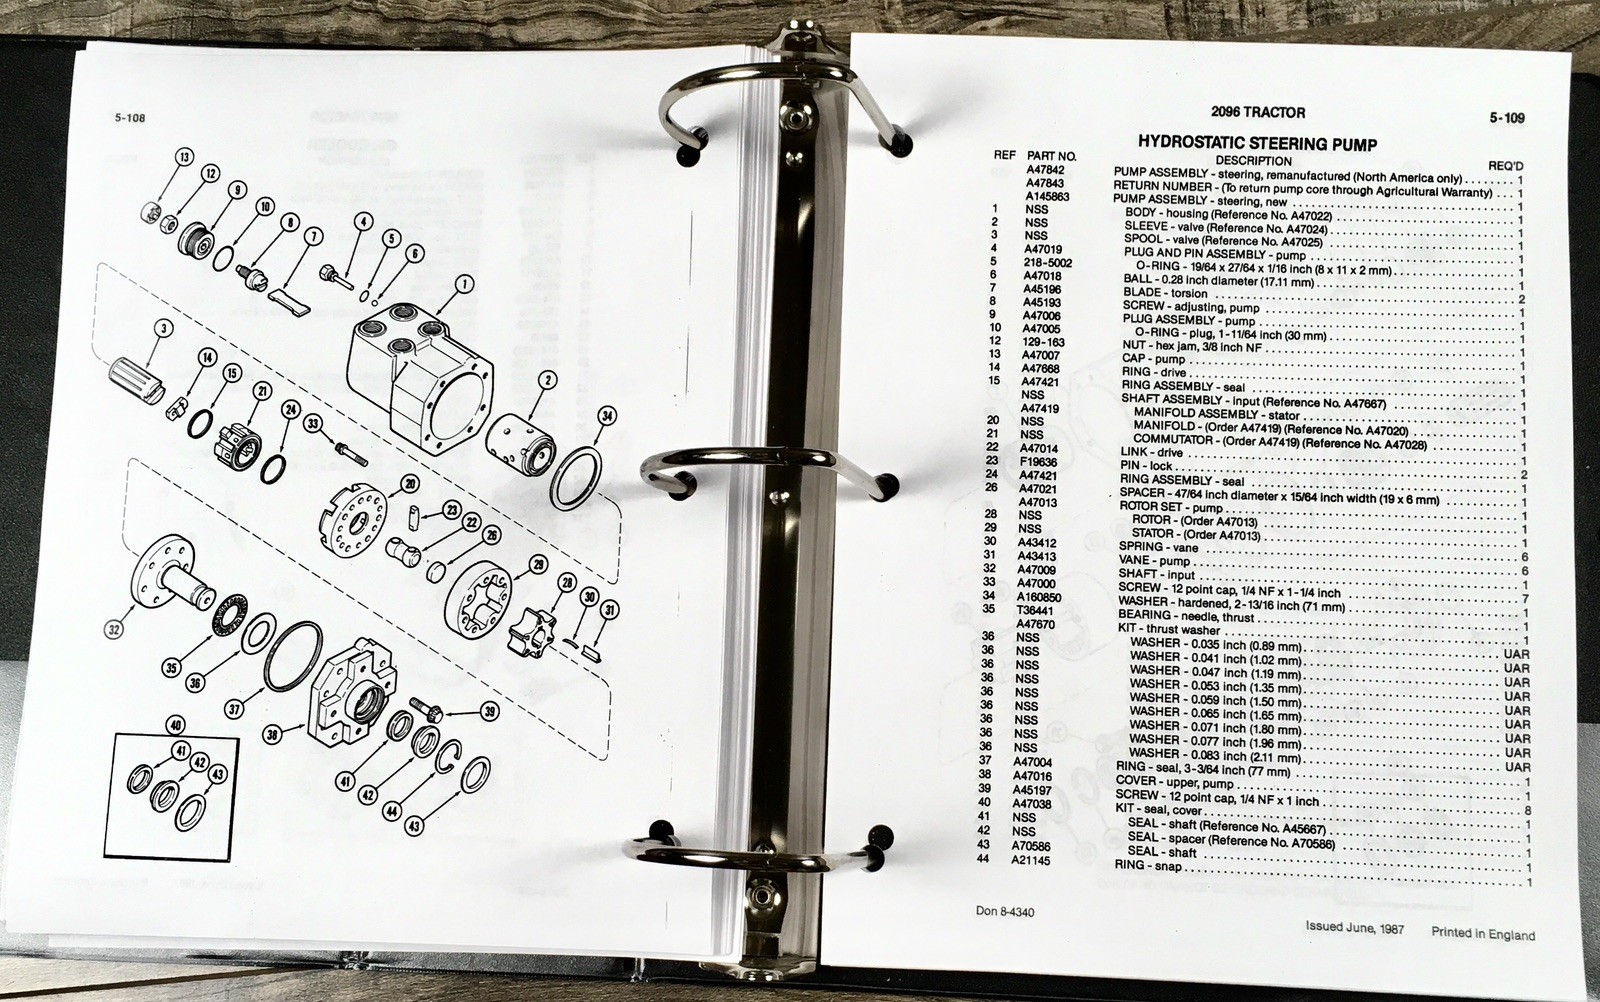 5-108
13
12
9
10
8
7
4
5
6
1
3
14
15
21
24
33
2
34
20
23
22
26
29
28
30
31
32
35
36
37
38
39
40
41
42
43
41
42
44
43
2096 TRACTOR
5-109
HYDROSTATIC STEERING PUMP
REF PART NO. DESCRIPTION REQ'D
A47842 PUMP ASSEMBLY - steering, remanufactured (North America only) 1
A47843 RETURN NUMBER - (To return pump core through Agricultural Warranty) 1
A145863 PUMP ASSEMBLY - steering, new 1
1 NSS BODY - housing (Reference No. A47022) 1
2 NSS SLEEVE - valve (Reference No. A47024) 1
3 NSS SPOOL - valve (Reference No. A47025) 1
4 A47019 PLUG AND PIN ASSEMBLY - pump 1
5 218-5002 O-RING - 19/64 x 27/64 x 1/16 inch (8 x 11 x 2 mm) 1
6 A47018 BALL - 0.28 inch diameter (17.11 mm) 1
7 A45196 BLADE - torsion 2
8 A45193 SCREW - adjusting, pump 1
9 A47006 PLUG ASSEMBLY - pump 1
10 A47005 O-RING - plug, 1-11/64 inch (30 mm) 1
12 129-163 NUT - hex jam, 3/8 inch NF 1
13 A47007 CAP - pump 1
14 A47668 RING - drive 1
15 A47421 RING ASSEMBLY - seal 1
NSS SHAFT ASSEMBLY - input (Reference No. A47667) 1
A47419 MANIFOLD ASSEMBLY - stator 1
20 NSS MANIFOLD - (Order A47419) (Reference No. A47020) 1
21 NSS COMMUTATOR - (Order A47419) (Reference No. A47028) 1
22 A47014 LINK - drive 1
23 F19636 PIN - lock 2
24 A47421 RING ASSEMBLY - seal 1
26 A47021 SPACER - 47/64 inch diameter x 15/64 inch width (19 x 6 mm) 1
A47013 ROTOR SET - pump 1
28 NSS ROTOR - (Order A47013) 1
29 NSS STATOR - (Order A47013) 1
30 A43412 SPRING - vane 6
31 A43413 VANE - pump 6
32 A47009 SHAFT - input 1
33 A47000 SCREW - 12 point cap, 1/4 NF x 1-1/4 inch 7
34 A160850 WASHER - hardened, 2-13/16 inch (71 mm) 1
35 T36441 BEARING - needle, thrust 1
A47670 KIT - thrust washer 1
36 NSS WASHER - 0.035 inch (0.89 mm) UAR
36 NSS WASHER - 0.041 inch (1.02 mm) UAR
36 NSS WASHER - 0.047 inch (1.19 mm) UAR
36 NSS WASHER - 0.053 inch (1.35 mm) UAR
36 NSS WASHER - 0.059 inch (1.50 mm) UAR
36 NSS WASHER - 0.065 inch (1.65 mm) UAR
36 NSS WASHER - 0.071 inch (1.80 mm) UAR
36 NSS WASHER - 0.077 inch (1.96 mm) UAR
36 NSS WASHER - 0.083 inch (2.11 mm) UAR
37 A47004 RING - seal, 3-3/64 inch (77 mm) 1
38 A47016 COVER - upper, pump 1
39 A45197 SCREW - 12 point cap, 1/4 NF x 1 inch 8
40 A47038 KIT - seal, cover 1
41 NSS SEAL - shaft (Reference No. A45667) 1
42 NSS SEAL - spacer (Reference No. A70586) 1
43 A70586 SEAL - shaft 1
44 A21145 RING - snap 1
Don 8-4340
Issued June, 1987 Printed in England